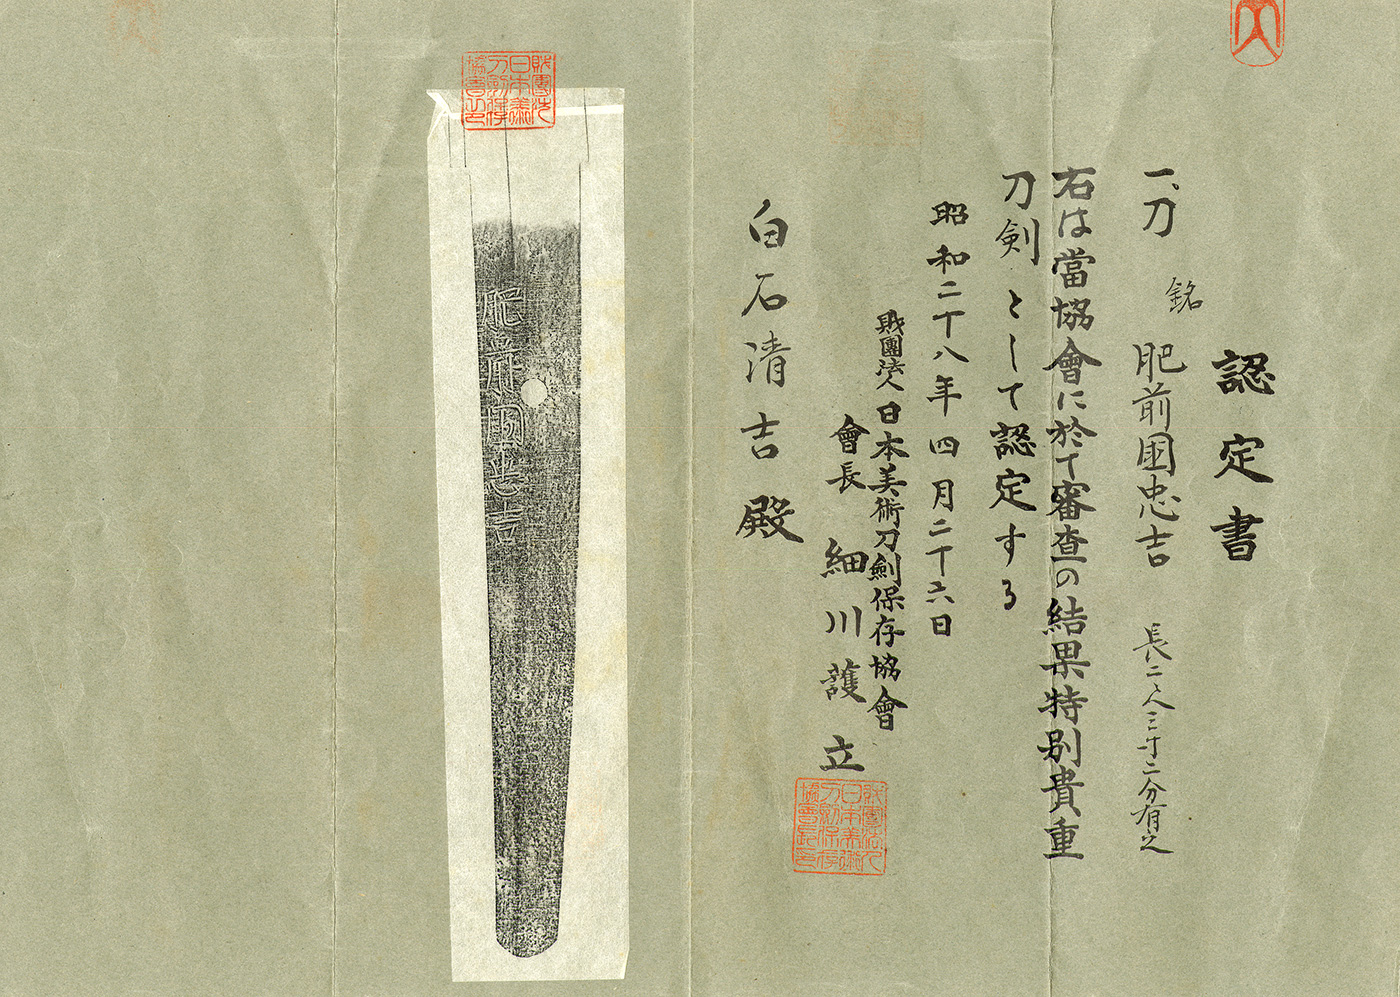 認定書
一、刀 銘 肥前國忠吉 長二尺三寸二分有之
右は當協會に於て審査の結果特別貴重
刀剣として認定する
昭和二十八年四月二十六日
財團法人 日本美術刀剣保存協會
會長 細川護立
財團法人日本美術刀剣保存協會長印
白石清吉殿
財團法人日本美術刀剣保存協會之印
肥前國忠吉